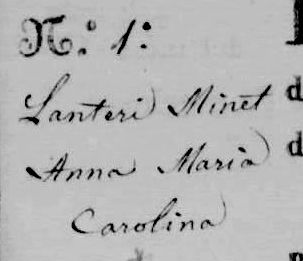 N.º 1º
Lanteri Minet
Anna Maria
Carolina